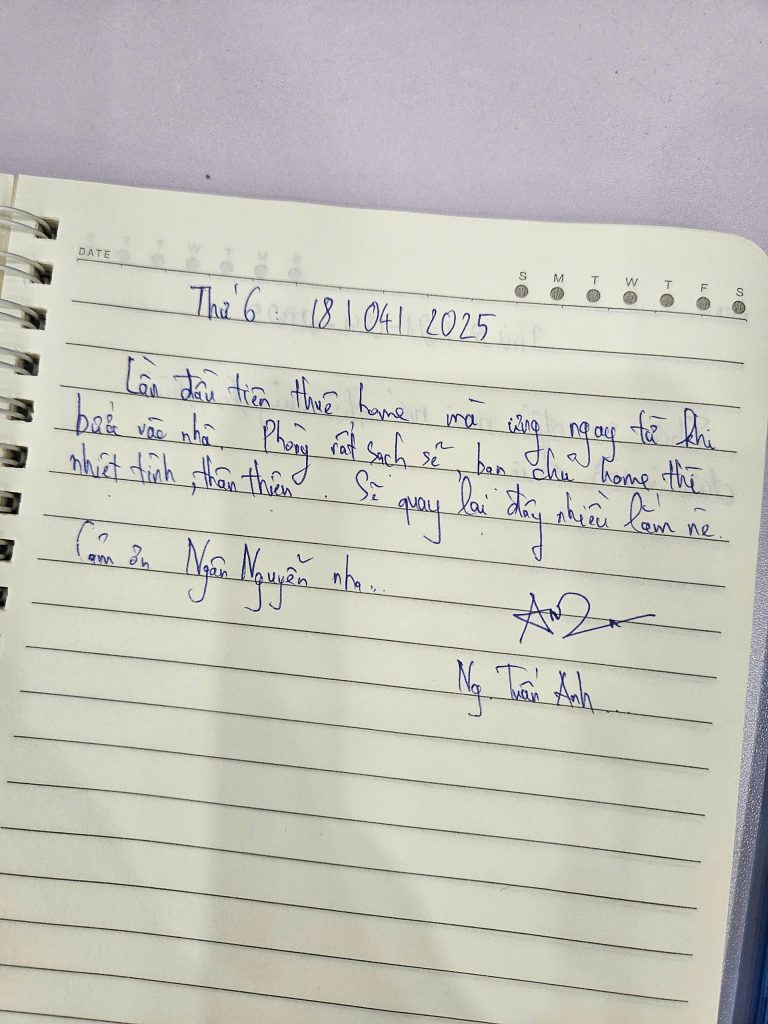 DATE
S M T W T F S
Thứ 6 : 18 | 04 | 2025
Lần đầu tiên thuê home mà ưng ngay từ khi
bước vào nhà. Phòng rất sạch sẽ, bạn chủ home thì
nhiệt tình, thân thiện. Sẽ quay lại đây nhiều lắm nè.
Cảm ơn Ngân Nguyễn nha...
Ng. Tuấn Anh...